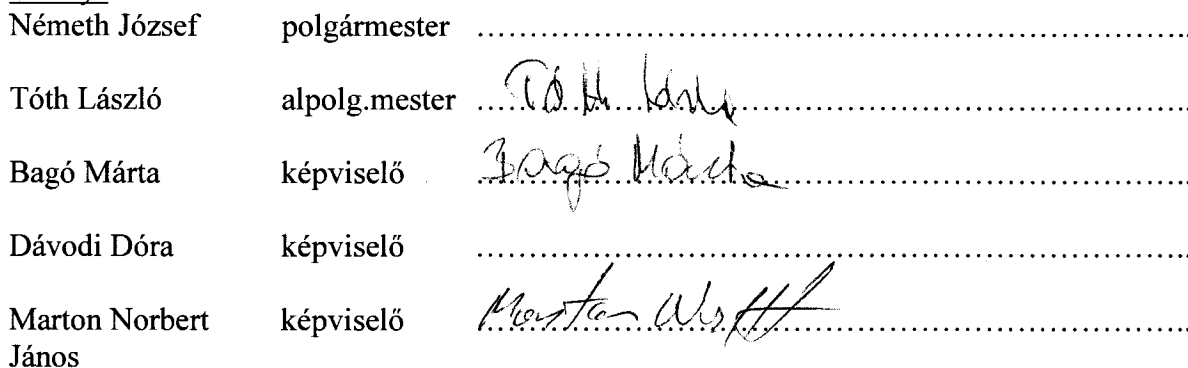 Németh József polgármester ........................................................................
Tóth László alpolg.mester ....Tóth László........................................................
Bagó Márta képviselő Bagó Márta........................................................
Dávodi Dóra képviselő ........................................................................
Marton Norbert képviselő Marton ........................................................
János